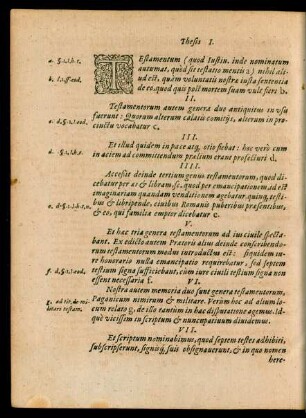 Thesis I.
TEstamentum (quod Iustin. inde nominatum
autumat, quòd sic testatio mentis a) nihil ali-
ud est, quàm voluntatis nostræ iusta sententia
de eo, quod quis post mortem suam vult fiere b.
II.
Testamentorum autem genera duo antiquitus in vsu
fuerunt: Quorum alterum calatis comitijs, alterum in pro-
cinctu vocabatur c.
III.
Et illud quidem in pace atq; otio fiebat: hoc verò cum
in aciem ad committendum prælium erant profecturi d.
IIII.
Accessit deinde tertium genus testamentorum, quod di-
cebatur per æs & libram, sc. quod per emancipationem, id est
imaginariam quandam venditionem agebatur, quinq; testi-
bus & libripende, ciuibus Romanis puberibus præsentibus,
& eo, qui familiæ emptor dicebatur e.
V.
Et hæc tria genera testamentorum ad ius ciuile specta-
bant. Ex edicto autem Prætoris alius deinde conscribendo-
rum testamentorum modus introductus est: siquidem iu-
re honorario nulla emancipatio requirebatur, sed septem
testium signa sufficiebant, cum iure ciuili testium signa non
essent necessaria f.
VI.
Nostra autem memoria duo sunt genera testamentorum,
Paganicum nimirum & militare. Verùm hoc ad alium lo-
cum relato g, de illo tantùm in hac disputatione agemus. Id-
que vicissim in scriptum & nuncupatiuum diuidemus.
VII.
Et scriptum nominabimus, quod septem testes adhibiti,
subscripserunt, signisq́; suis obsignauerunt, & in quo nomen
here-